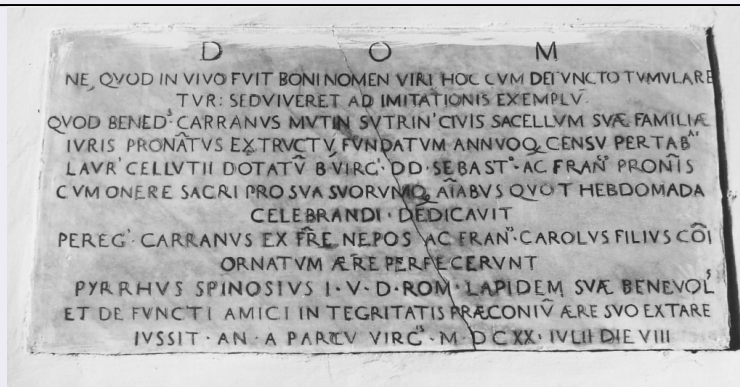 D O M
NE, QVOD IN VIVO FVIT BONI NOMEN VIRI HOC CVM DEFVNCTO TVMVLARE
TVR: SED VIVERET AD IMITATIONIS EXEMPLV̄
QVOD BENEDˢ CARRANVS MVTIN SVTRIN' CIVIS SACELLVM SVÆ FAMILIÆ
IVRIS PRONĀTVS EXTRVCTV̄ FVNDATVM ANNVOQ CENSV PER TABᴬˢ
LAVR' CELLVTII DOTATV̄ B' VIRG' DD SEBASTᵒ AC FRANᶜᵒ PRONĪS
CVM ONERE SACRI PRO SVA SVORVMQ AĪABVS QVOT HEBDOMADA
CELEBRANDI · DEDICAVIT
PEREG' CARRANVS EX FR̄E NEPOS AC FRANᶜ CAROLVS FILIVS CŌI
ORNATVM ÆRE PERFECERVNT
PYRRHVS SPINOSIVS I · V · D · ROM · LAPIDEM SVÆ BENEVOLˢ
ET DEFVNCTI AMICI INTEGRITATIS PRÆCONIV̄ ÆRE SVO EXTARE
IVSSIT · AN · A PARTV VIRGⁱˢ · M · DCXX · IVLII DIE VIII